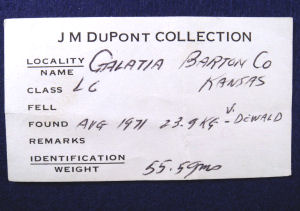 J M DUPONT COLLECTION
LOCALITY GALATIA BARTON CO
NAME KANSAS
CLASS L6
FELL
FOUND AUG 1971 23.9 KG V. - DEWALD
REMARKS
IDENTIFICATION
WEIGHT 55.5 gms